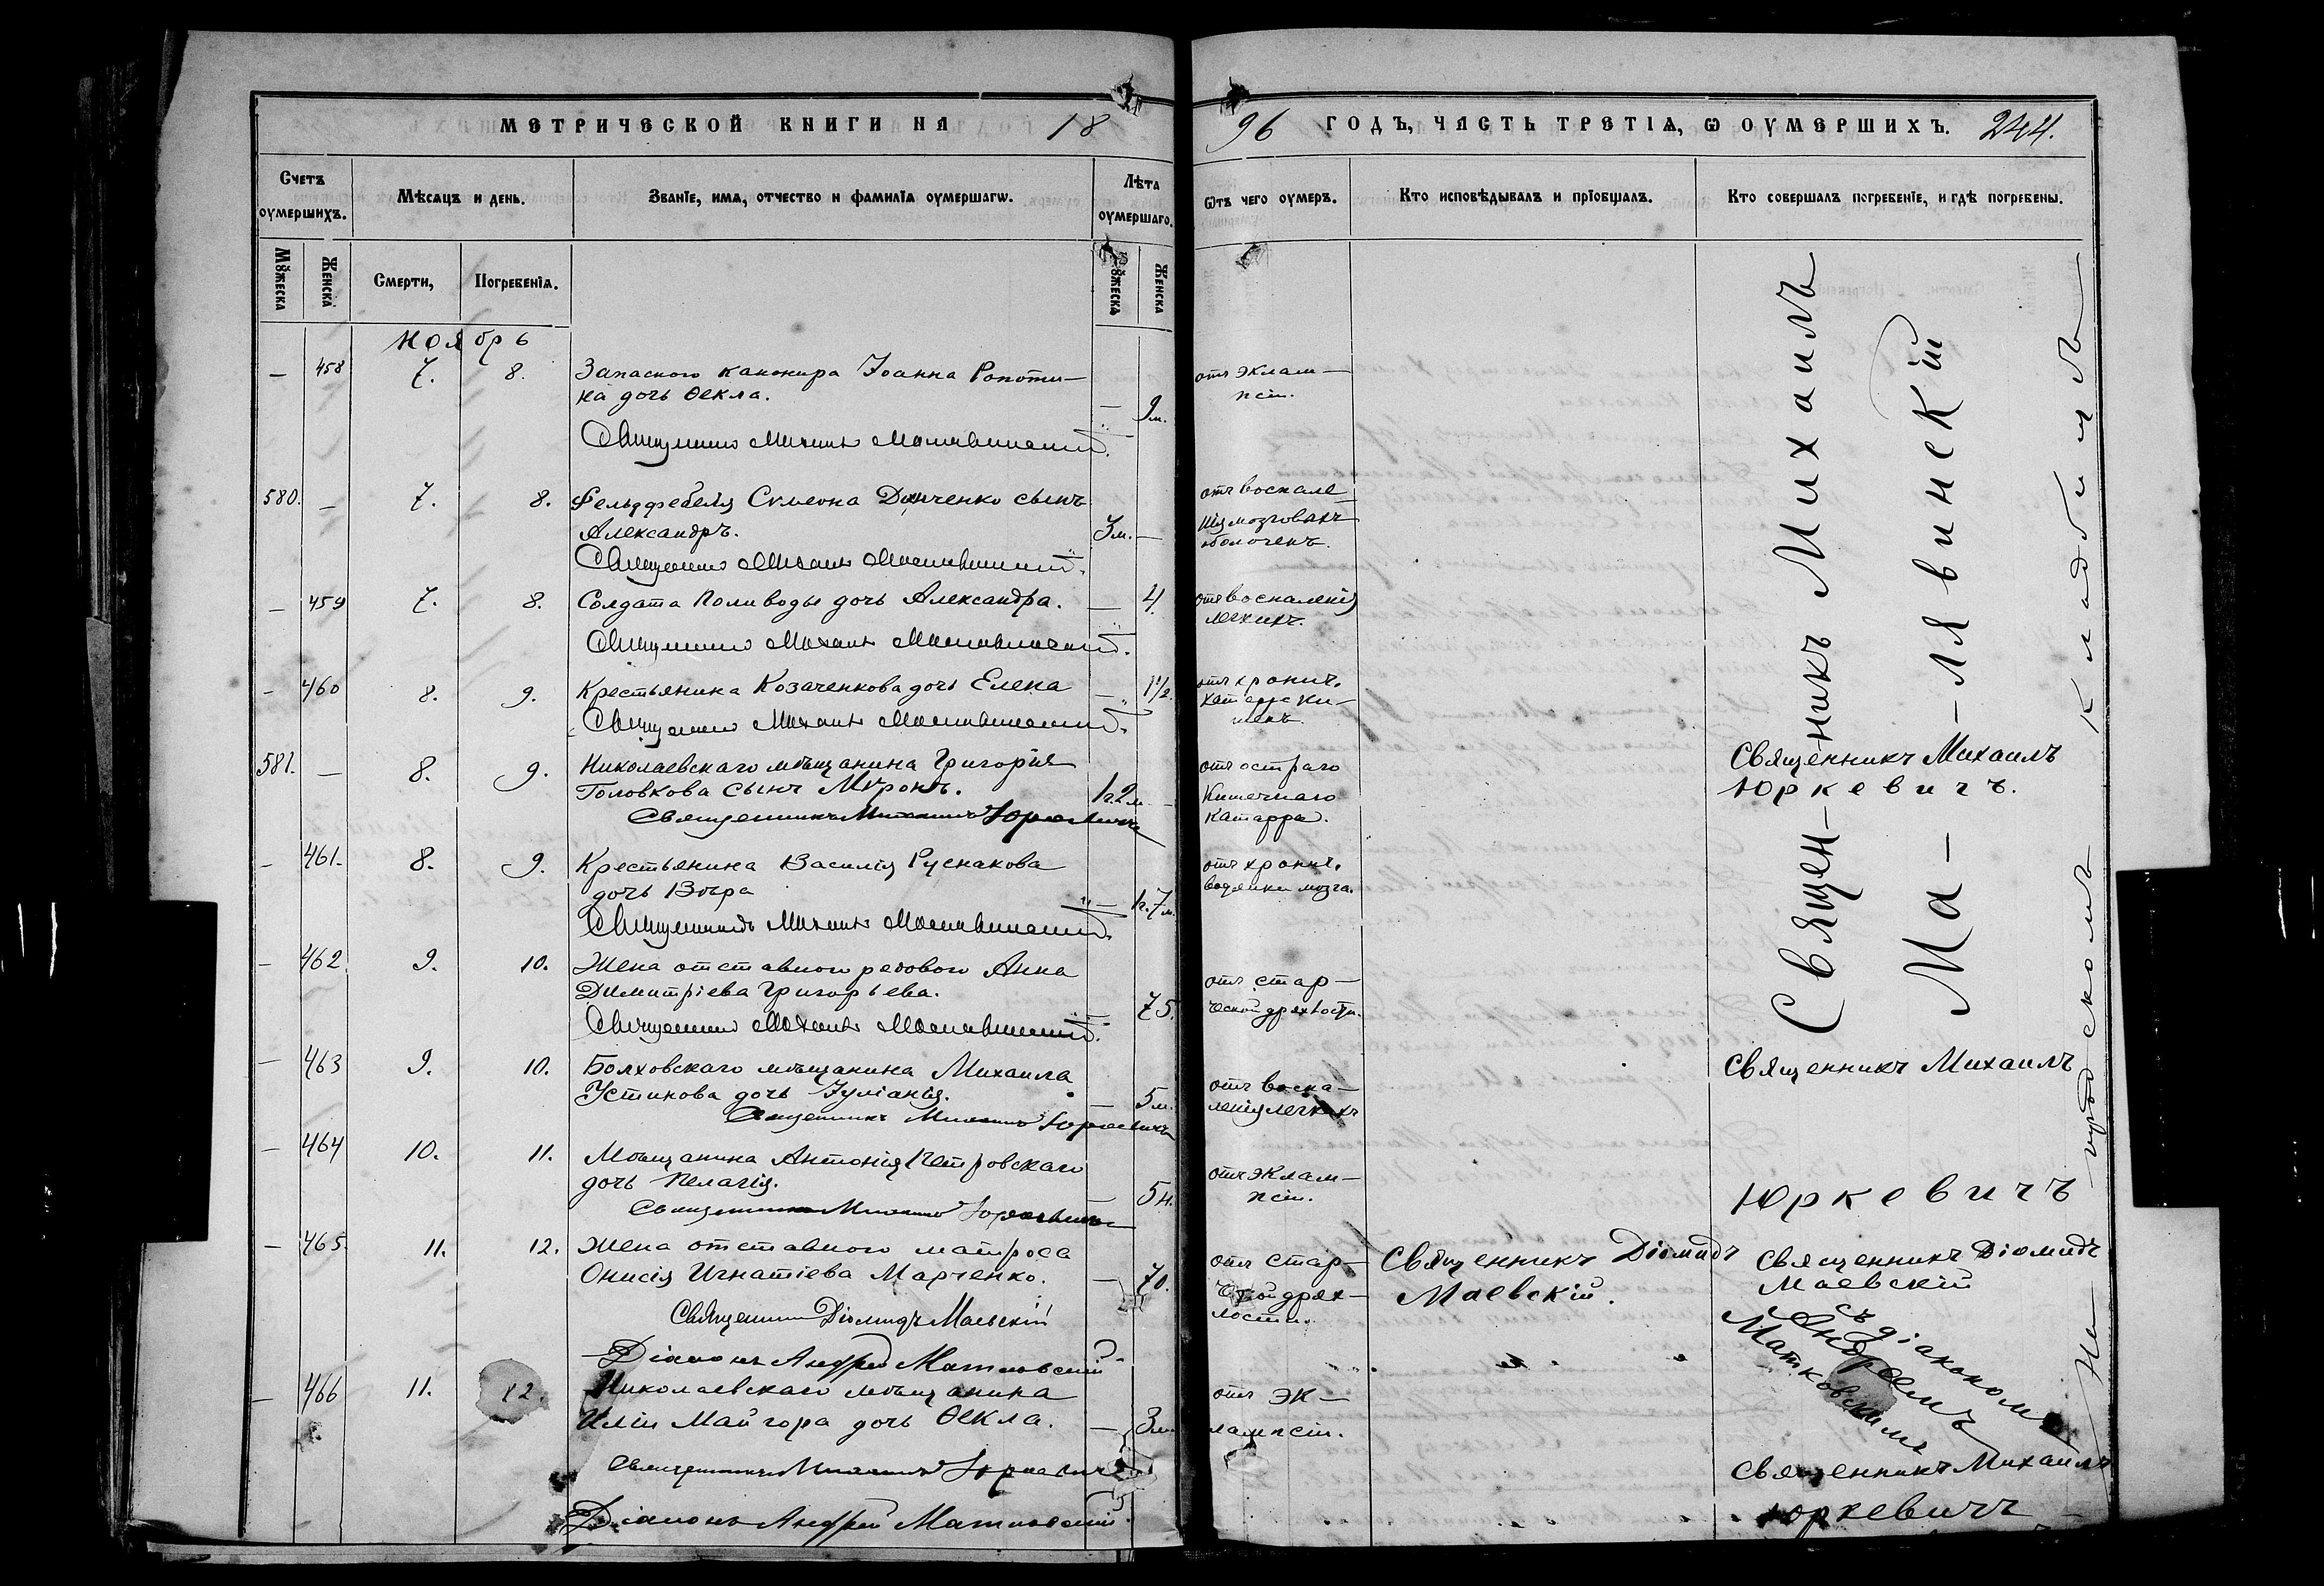 МЕТРИЧЕСКОЙ КНИГИ НА 18
96 ГОДЪ, ЧАСТЬ ТРЕТІѦ, Ѡ ОУМЕРШИХЪ. 244.
Счетъ оумершихъ.
Мѣсѧцъ и день.
Званіе, имѧ, отчество и фамиліѧ оумершагѡ.
Лѣта оумершаго.
Ѿтъ чего оумеръ.
Кто исповѣдывалъ и пріобщалъ.
Кто совершалъ погребеніе, и гдѣ погребены.
Мꙋжеска
Женска
Смерти,
Погребеніѧ.
Мꙋжеска
Женска
Ноябрь
— 458 7. 8. Запаснаго канонира Іоанна Ропоти-
на дочь Ѳекла. — 9 м.
отъ эклам-
псіи.
Священникъ Михаилъ
580. — 7. 8. Фельдфебеля Сѵмеона Донченко сынъ
Александръ. 3 м. —
отъ воспале-
нія мозговыхъ
оболочекъ.
Священникъ Михаилъ
— 459 7. 8. Солдата Поливоды дочь Александра. — 4.
отъ воспаленія
легкихъ.
Священникъ Михаилъ
— 460 8. 9. Крестьянина Козаченкова дочь Елена — 1 1/2.
отъ хронич.
катарра ки-
шекъ.
Священникъ Михаилъ
581. — 8. 9. Николаевскаго мѣщанина Григорія
Головкова сынъ Мѵронъ. 1 г. 2 м. —
отъ остраго
кишечнаго
катарра.
Священникъ Михаилъ Юркевичъ
Священникъ Михаилъ
Юркевичъ.
— 461. 8. 9. Крестьянина Василія Руснакова
дочь Вѣра — 1 г. 7 м.
отъ хронич.
водянки мозга.
Священникъ Михаилъ
— 462. 9. 10. Жена отставного рядового Анна
Димитріева Григорьева. — 75.
отъ стар-
ческой дряхлости.
Священникъ Михаилъ
Священ-никъ Михаилъ
Ма-лявинскій
— 463 9. 10. Болховскаго мѣщанина Михаила
Устинова дочь Іуліанія. — 5 м.
отъ воспа-
ленія легкихъ
Священникъ Михаилъ Юркевичъ
Священникъ Михаилъ
— 464 10. 11. Мѣщанина Антонія Петровскаго
дочь Пелагія. — 5 н.
отъ эклам-
псіи.
Священникъ Михаилъ Юркевичъ
Юркевичъ
— 465. 11. 12. Жена отставного матроса
Онисія Игнатіева Марченко. — 70.
отъ стар-
дрях-
лости.
Священникъ Діомидъ
Маевскій.
Священникъ Діомидъ
Маевскій
съ діакономъ
Андреемъ
Матковскимъ
Священникъ Діомидъ Маевскій
Діаконъ Андрей Матковскій
— 466 11. 12. Николаевскаго мѣщанина
Иліи Майгора дочь Ѳекла. — 3 м.
отъ эк-
лампсіи.
Священникъ Михаилъ Юркевичъ
Діаконъ Андрей Матковскій
Священникъ Михаилъ
Юркевичъ
На городскомъ кладбищѣ